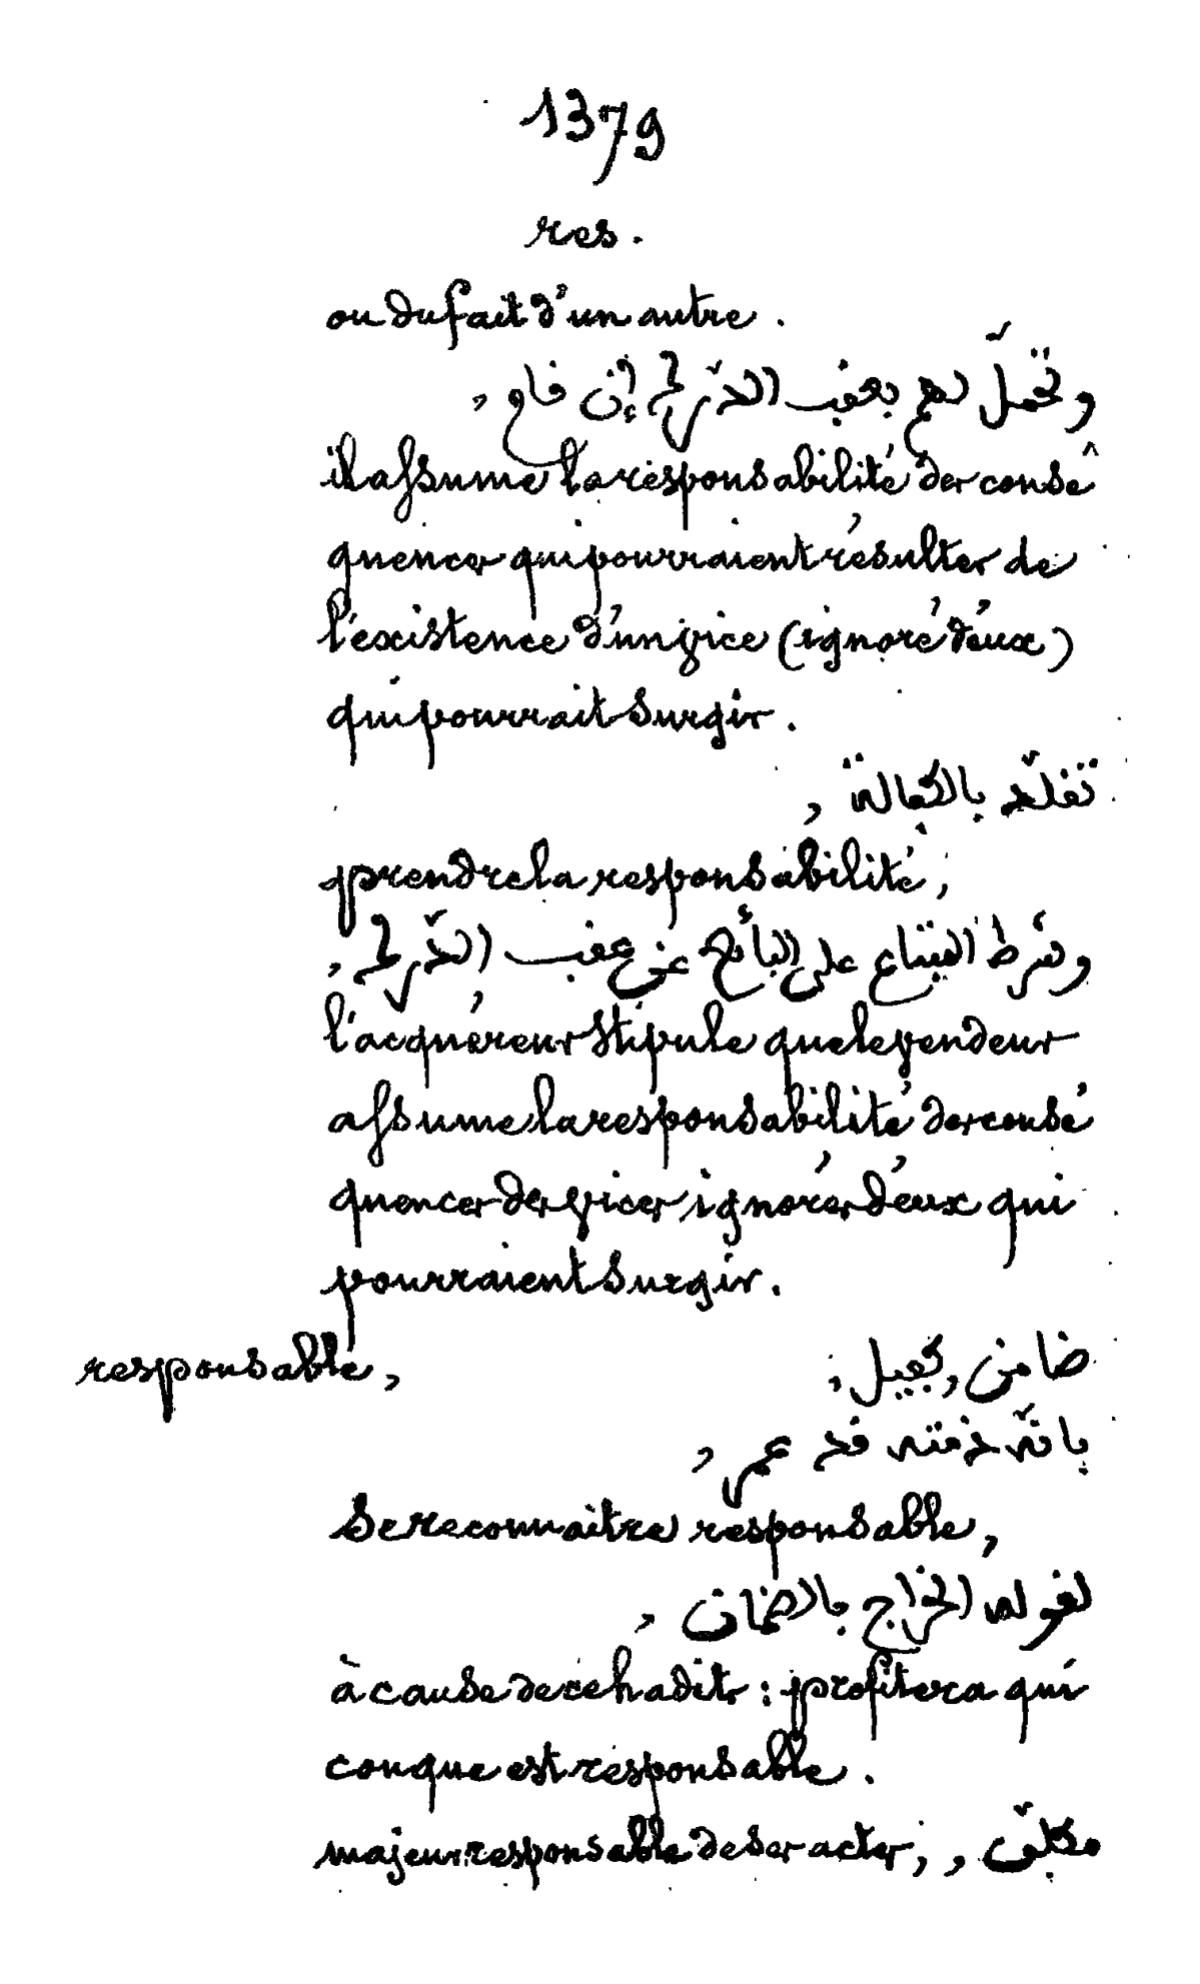 1379
res.
ou du fait d'un autre.
وتحمّل لهم بعقب الدّرك إن قام ,
il assume la responsabilité des consé
quences qui pourraient résulter de
l'existence d'un vice (ignoré d'eux)
qui pourrait surgir.
تقلّد بالكفالة ,
prendre la responsabilité,
وشرط المبتاع على البائع عن عقب الدّرك ,
l'acquéreur stipule que le vendeur
assume la responsabilité des consé
quences des vices ignorés d'eux qui
pourraient surgir.
responsable, ضامن, كفيل,
بانّ ذمّته قد عمر ,
se reconnaitre responsable,
لقوله الخراج بالضمان ,
à cause de ce hadits : profitera qui
conque est responsable.
majeur responsable de ses actes, , مكلّف